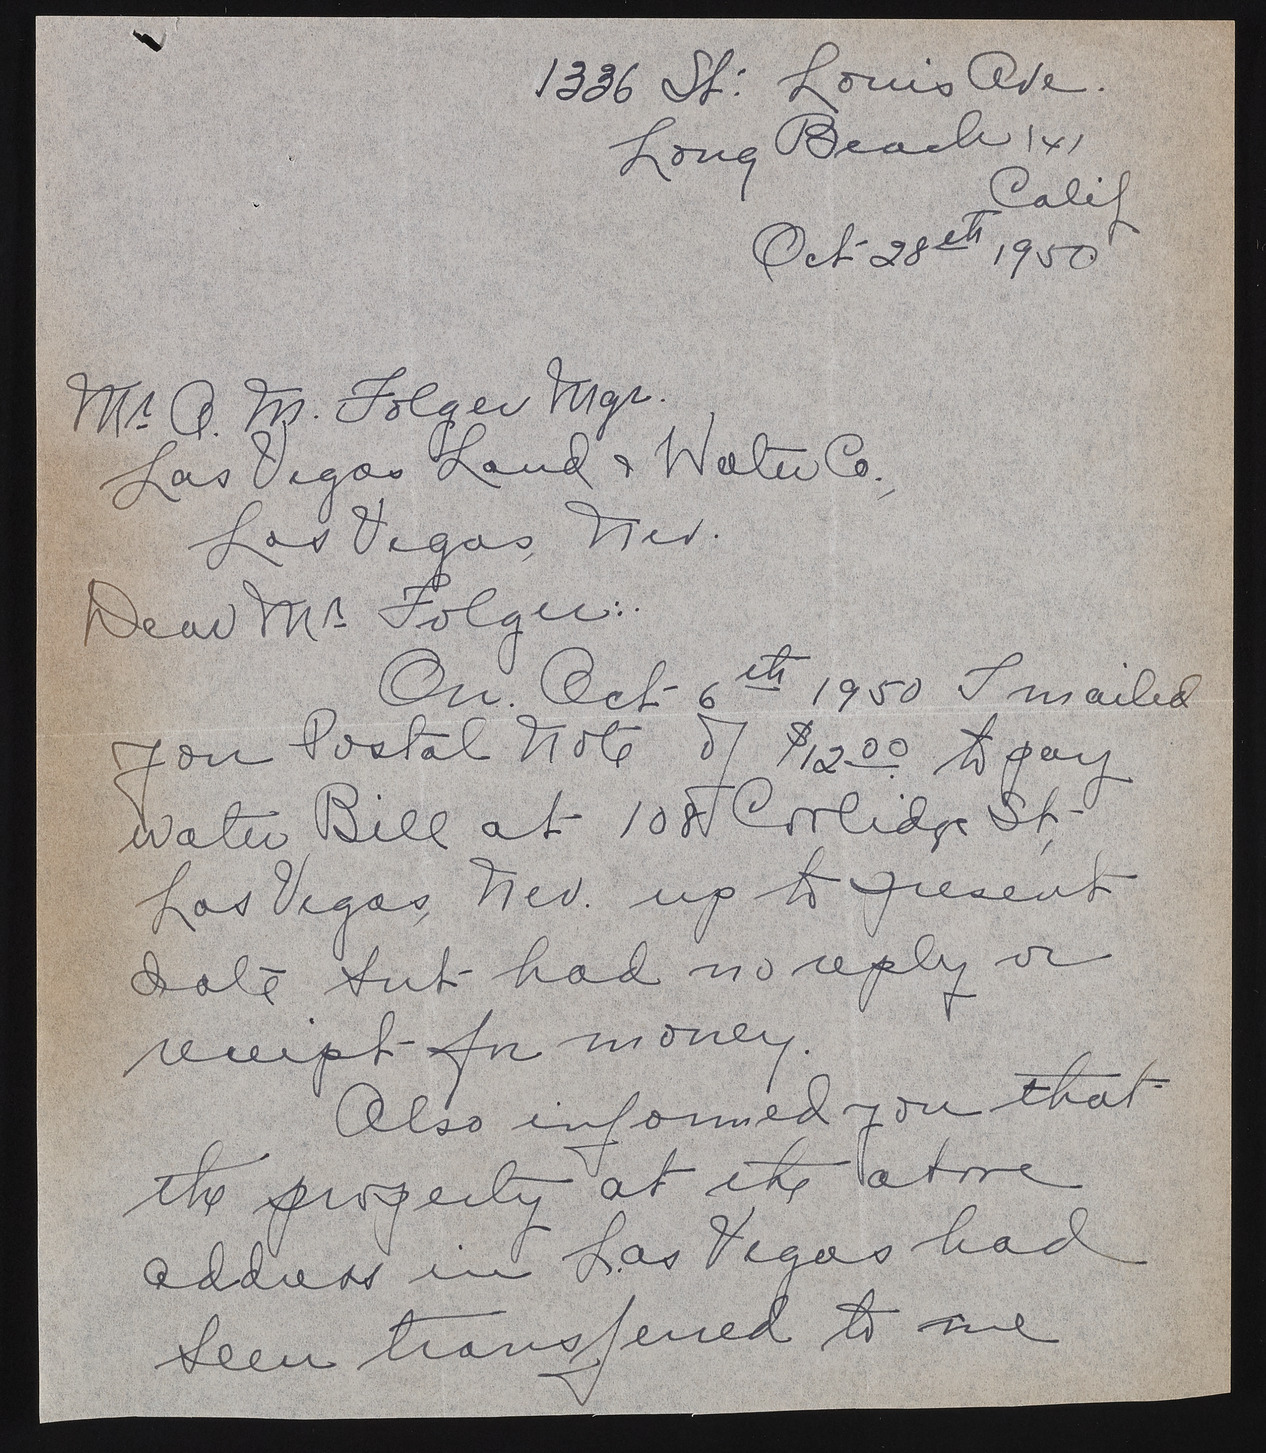 1336 St: Louis Ave.
Long Beach (4)
Calif
Oct 28th 1950
Mr A. M. Folger Mgr.
Las Vegas Land & Water Co.,
Las Vegas, Nev.
Dear Mr Folger:.
On. Oct 6th 1950 I mailed
you Postal Note of $12.00 to pay
water Bill at 108 Coolidge St,
Las Vegas, Nev. up to present
date but had no reply or
receipt for money.
Also informed you that
the property at the above
address in Las Vegas had
been transferred to me